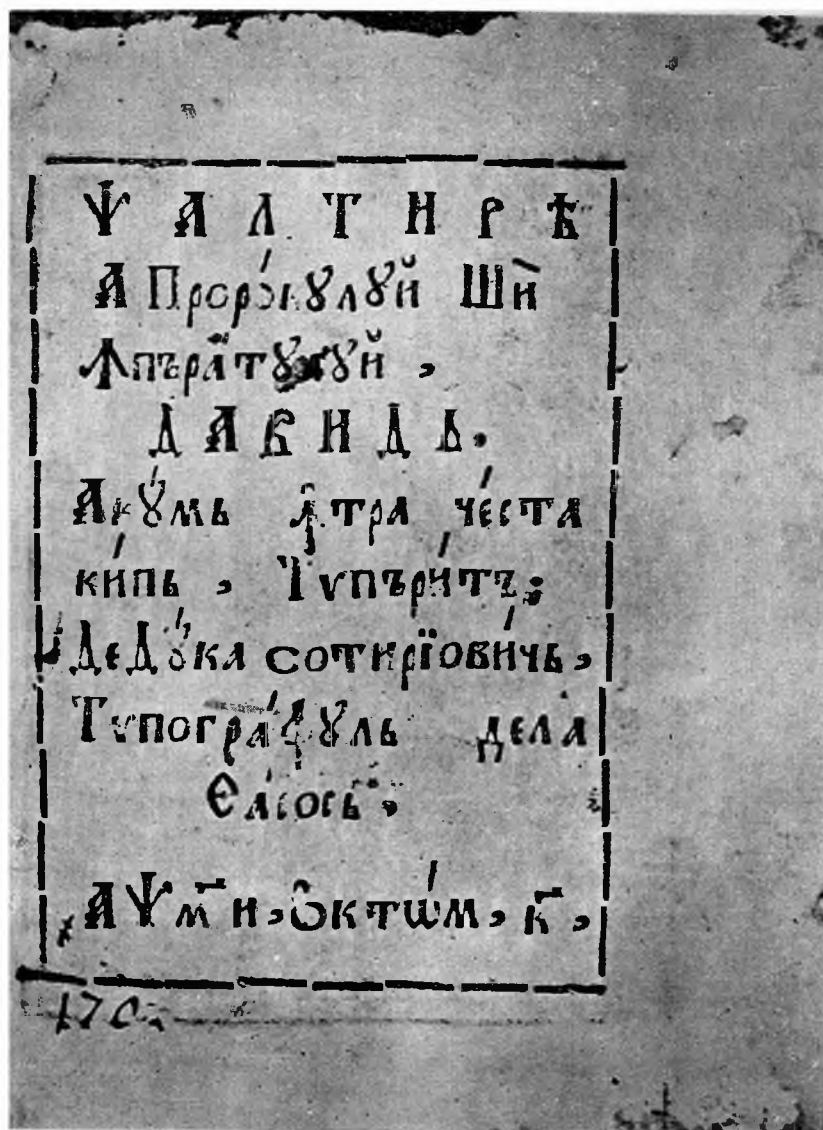 ѰАЛТИРѢ
А Проро́кꙋлꙋй Шѝ
Ꙟпъра́тꙋлꙋй ,
ДАВИДЬ.
Акꙋ́мь ꙟ҆тра че́ста
ки́пь , Тѵпъри́тъ;
ДеДꙋ́ка сотирїови́чь,
Тѵпогра́фꙋль дела
Ела́сось .
҂АѰм҃и, Ѻктѡ́м, к҃,